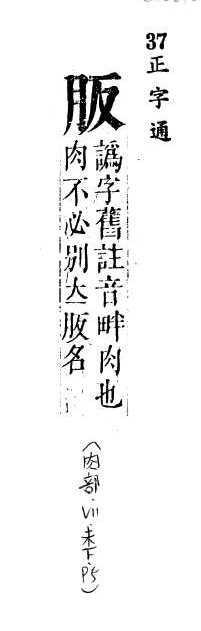 37正字通
䏽
譌字舊註音畔肉也
肉不必別大䏽名
(肉部.VII.未下.P5)